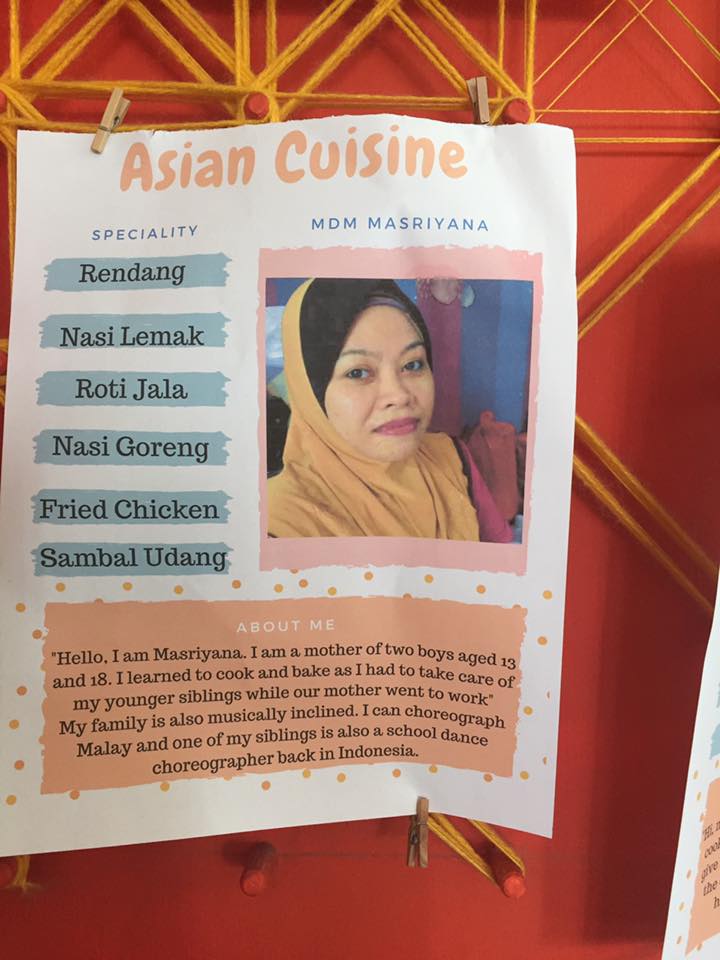 Asian Cuisine
SPECIALITY
MDM MASRIYANA
Rendang
Nasi Lemak
Roti Jala
Nasi Goreng
Fried Chicken
Sambal Udang
ABOUT ME
"Hello, I am Masriyana. I am a mother of two boys aged 13
and 18. I learned to cook and bake as I had to take care of
my younger siblings while our mother went to work"
My family is also musically inclined. I can choreograph
Malay and one of my siblings is also a school dance
choreographer back in Indonesia.
give
the